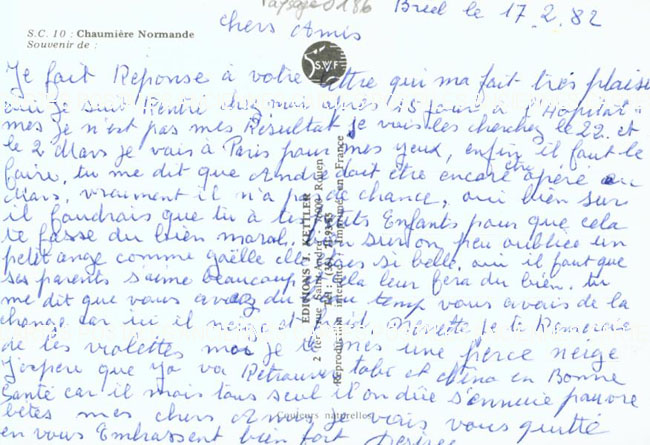 Paysage 0186
Breel le 17.2.82
chers Amis
S.C. 10 : Chaumière Normande
Souvenir de :
SWF
Je fait Réponse à votre lettre qui ma fait très plaisi
oui je suis Rentré chez moi après 15 jour à l'Hopital
mes je n'est pas mes Résultat je vais les cherchez le 22. et
le 2 Mars je vais à Paris pour mes yeux, enfin il faut le
faire, tu me dit que André doit être encore opéré en
Mars, vraiment il n'a pas de chance, oui bien sur
il faudrais que tu à tes petits Enfants pour que cela
te fasse du bien moral. on peu oublier un
petit ange comme gaëlle elle si belle. oui il faut que
ses parents s'aime beaucoup cela leur fera du bien. tu
me dit que vous avez du temp vous avais de la
change car ici il Je te Remercie
de tes violettes moi je mes une perce neige
J'espère que ya va Retrouver et en Bonne
Santé car il mais tous seul il on dire s'ennuie pauvre
bêtes mes chers Amis je vais vous quitté
en vous Embrassent bien fort
EDITIONS J. KETTLER
2 ter, rue Saint-André - 76000 Rouen
Reproduction interdite - Imprimé en France
Couleurs naturelles